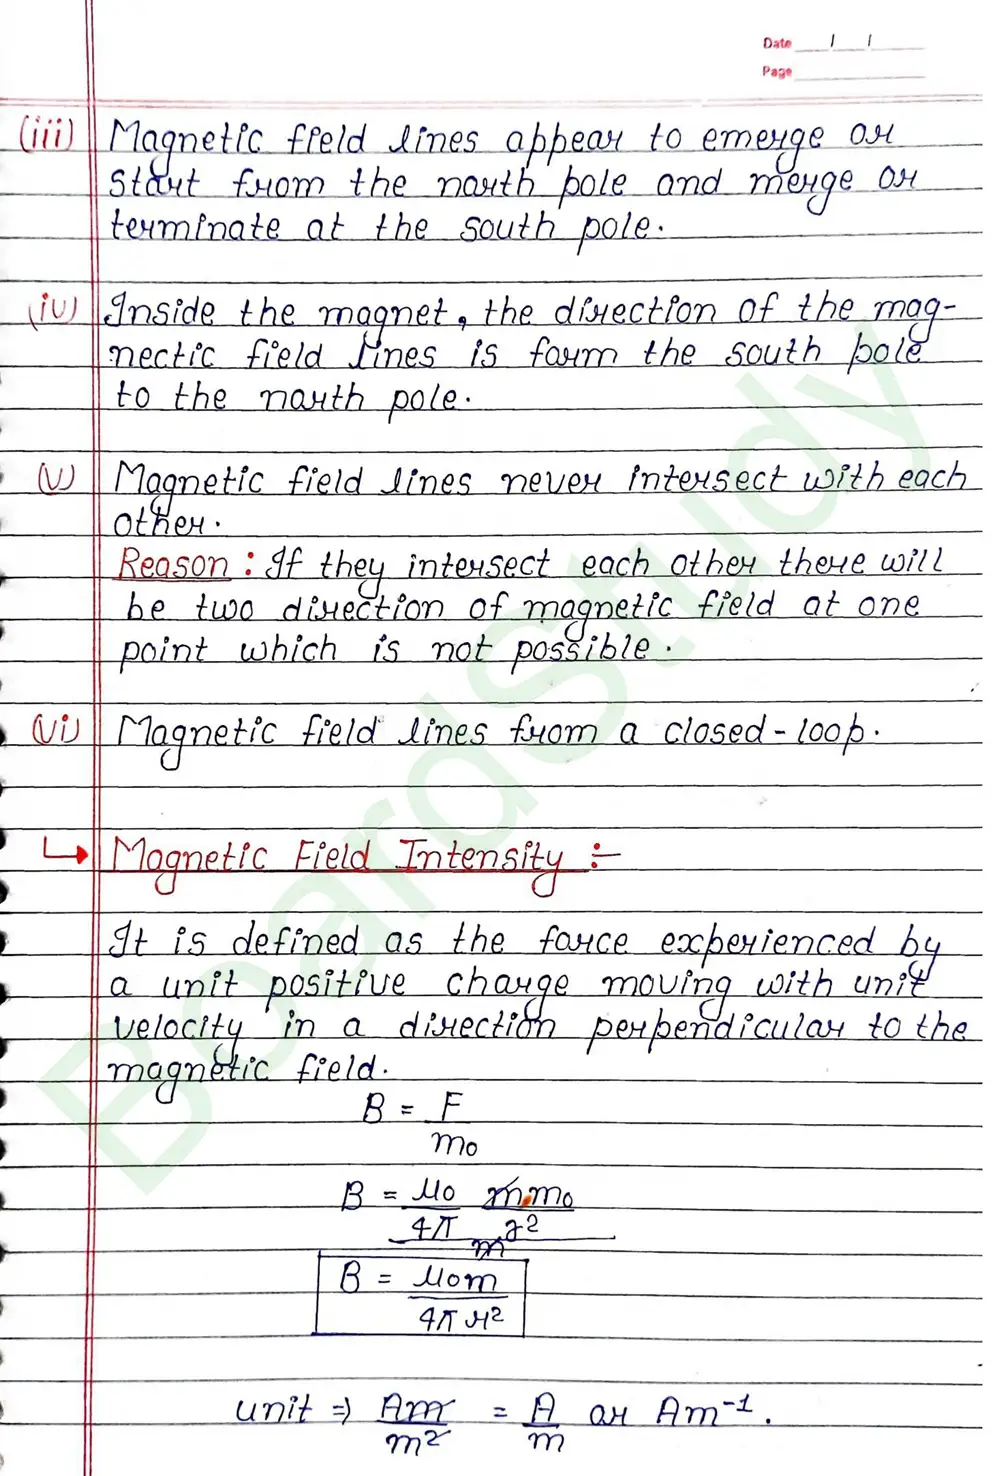 Date __/__/__
Page
(iii) Magnetic field lines appear to emerge or
start from the north pole and merge or
terminate at the south pole.
(iv) Inside the magnet, the direction of the mag-
nectic field lines is form the south pole
to the north pole.
(v) Magnetic field lines never intersect with each
other.
Reason : If they intersect each other there will
be two direction of magnetic field at one
point which is not possible.
(vi) Magnetic field lines from a closed-loop.
↳ Magnetic Field Intensity :-
It is defined as the force experienced by
a unit positive charge moving with unit
velocity in a direction perpendicular to the
magnetic field.
B = F
m₀
B = μ₀ m.m₀
4π r²
m
B = μ₀m
4π r²
unit ⇒ Am = A or Am⁻¹.
m² m
BoardStudy